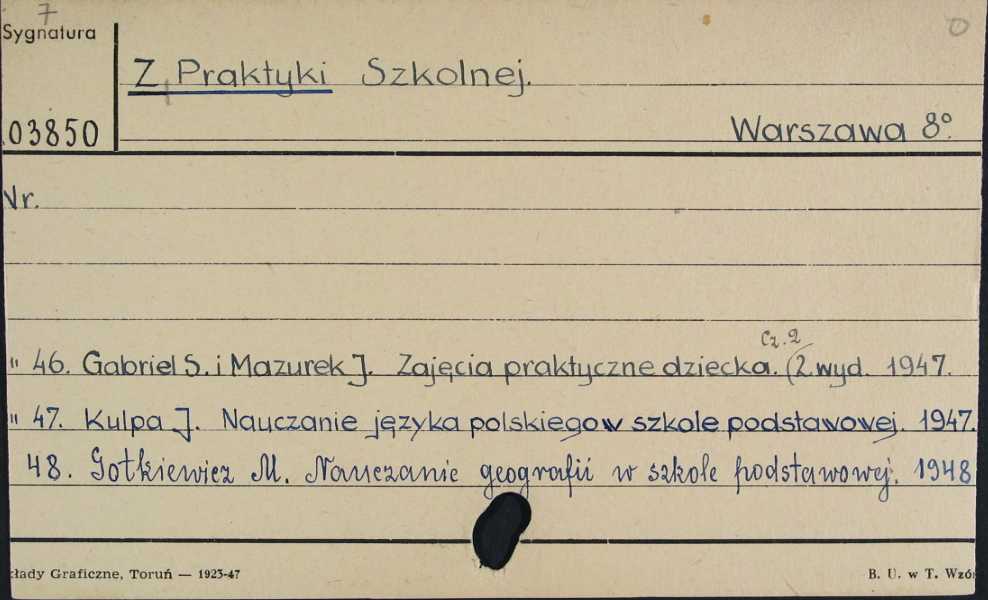 7
Sygnatura
0
Z Praktyki Szkolnej.
03850
Warszawa 8°.
Nr.
Cz. 2
" 46. Gabriel S. i Mazurek J. Zajęcia praktyczne dziecka. (2. wyd. 1947.
" 47. Kulpa J. Nauczanie języka polskiego w szkole podstawowej. 1947.
48. Gotkiewicz M. Nauczanie geografii w szkole podstawowej. 1948
kłady Graficzne, Toruń — 1923-47
B. U. w T. Wzór